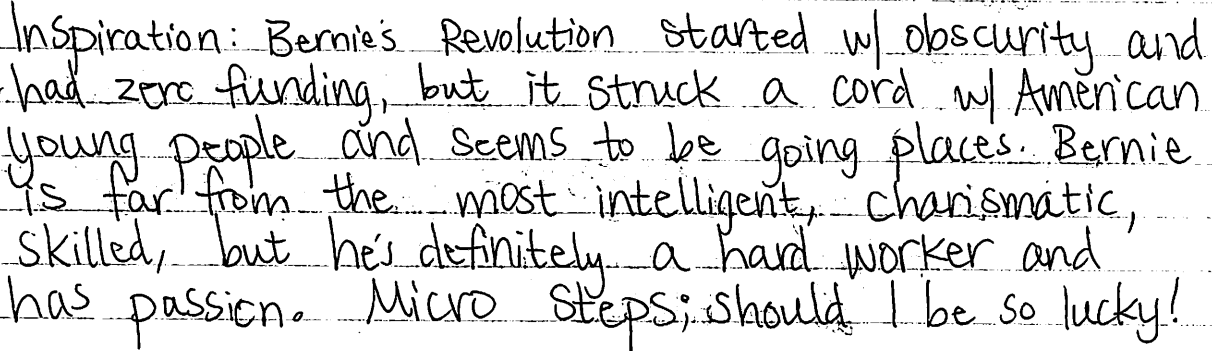 Inspiration: Bernie's Revolution started w/ obscurity and
had zero funding, but it struck a cord w/ American
young people and seems to be going places. Bernie
is far from the most intelligent, charismatic,
skilled, but he's definitely a hard worker and
has passion. Micro Steps; should I be so lucky!